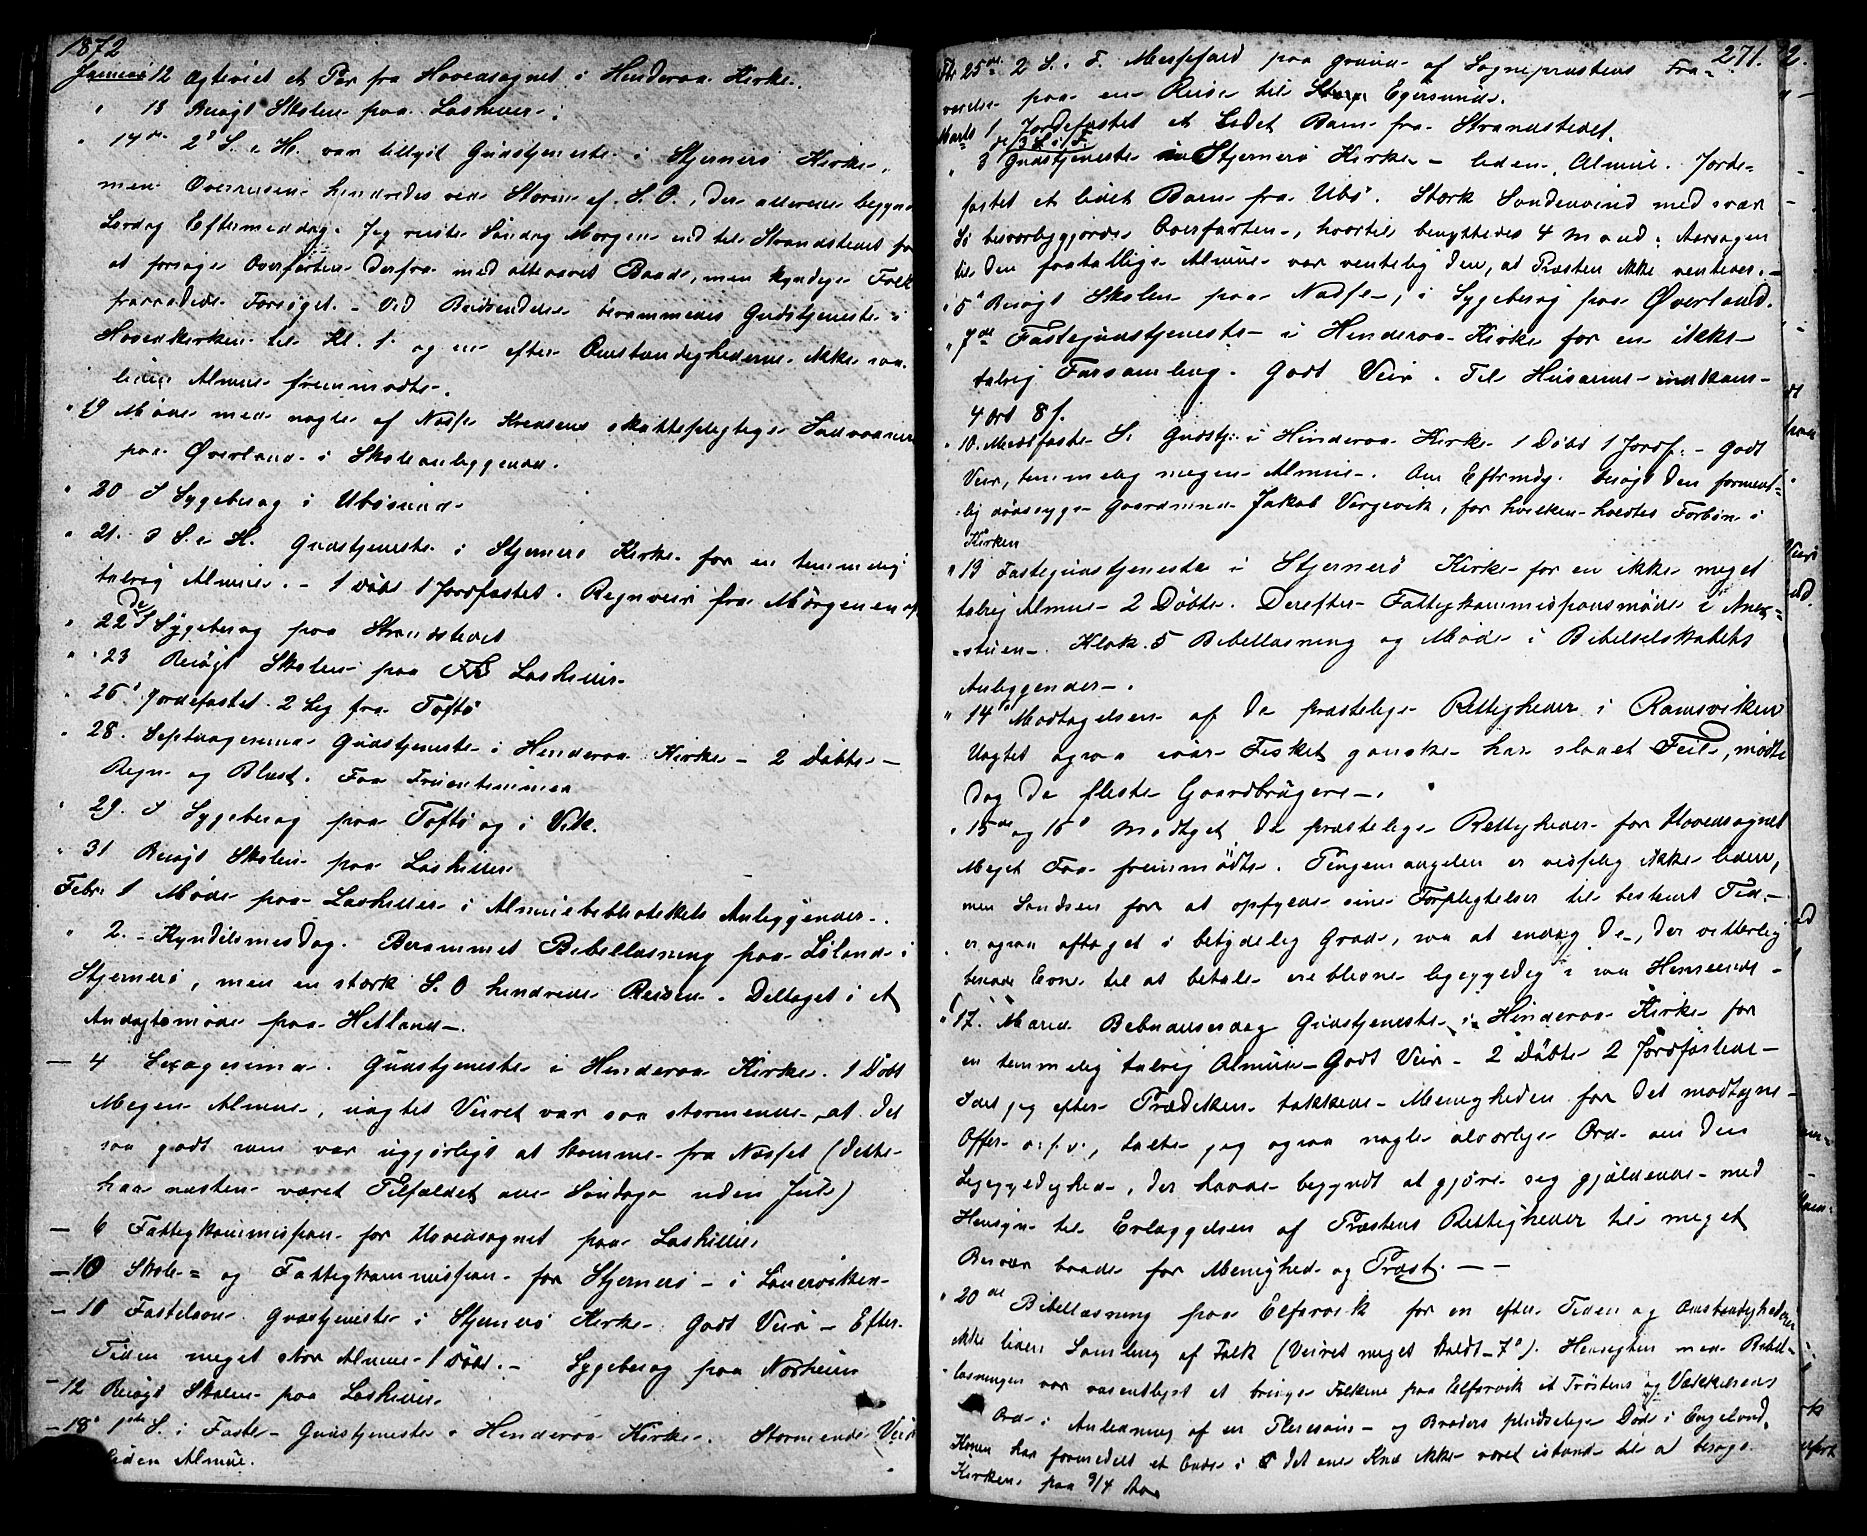 1872
Januar 12 Ægteviet et Par fra Hovedsognet i Hinderaa Kirke.
" 13 Besøgt Skolen paa Lashiller.
" 14de 2d S. e. H. var tillyst Gudstjeneste i Stjernerø Kirke,
men Overreisen hindredes ved Storm af S.O., der allerede begyndte
Lørdag Eftermiddag. Jeg reiste Søndag Morgen ud til Strandstedet for
at forsøge Overfarten derfra med otteaaret Baad, men kyndige Folk
fraraadede Forsøget. – Ved Budsendelse berammedes Gudstjeneste i
Hovedkirken til Kl. 1 og en efter Omstændighederne ikke saa
liden Almue fremmødte.
" 19 Møde med nogle af Næsse Kredsens skattepligtige Indvaanere
paa Øverland i Skoleanliggender.
" 20 I Sygebesøg i Ubøsund
" 21. 3 S. e. H. Gudstjeneste i Stjernerø Kirke for en temmelig
talrig Almue. – 1 Døbt 1 Jordfæstet. Regnveir fra Morgenen af
" 22de I Sygebesøg paa Strandstedet
" 23 Besøgt Skolen paa Lashiller
" 26 Jordfæstet 2 Lig fra Toftø
" 28. Septuagesima Gudstjeneste i Hinderaa Kirke – 2 Døbte –
Regn og Blæst. Faa Fruentimmer
" 29. I Sygebesøg paa Toftø og i Vik.
" 31 Besøgt Skolen paa Lashiller
Febr. 1 Møde paa Lashiller i Almuebibliothekets Anliggender.
" 2. – Kyndelsmesdag. Berammet Bibellæsning paa Løland i
Stjernerø, men en stærk S.O hindrede Reisen. Deltaget i et
Andagtsmøde paa Hetland.
– 4 Sexagesima. Gudstjeneste i Hinderaa Kirke. 1 Døbt
Megen Almue, uagtet Veiret var saa stormende, at det
saa godt som var ugjørligt at komme fra Næsset (dette
har næsten været Tilfældet alle Søndage siden Jul)
– 6 Fattigkommission for Hovedsognet paa Lashiller
– 10 Skole= og Fattigkommission for Stjernerø – i
– 10 Fastelavn Gudstjeneste i Stjernerø Kirke. Godt Veir – Efter
Tiden meget stor Almue 1 Døbt. – Sygebesøg paa Norheim
– 12 Besøgt Skolen paa Lashiller.
– 18 1ste S. i Faste – Gudstjeneste i Hinderaa Kirke. Stormende Veir
liden Almue.
271.
Feb 25de 2 S. i F. Messefald paa Grund af Sognepræstens Fra=
værelse paa en Reise til Egersund.
Marts 1 Jordfæstet et lidet Barn fra Strandstedet.
" 3de 3 S. i F. Gudstjeneste i Stjernerø Kirke – liden Almue. Jord=
fæstet et lidet Barn fra Ubø. Stærk Søndenvind med svær
Sø besværliggjorde Overfarten, hvortil benyttedes 4 Mand; Aarsagen
til den faatallige Almue var ventelig den, at Præsten ikke ventedes. –
" 5 Besøgt Skolen paa Nædse, i Sygebesøg paa Øverland.
" 7de Fastegudstjeneste i Hinderaa Kirke for en ikke
talrig Forsamling. Godt Veir. Til Husarme indkom
4 ort 8 s.
" 10. Midtfaste S. Gudstj. i Hinderaa Kirke 1 Døbt 1 Jordf. – Godt
Veir, temmelig megen Almue. Om Eftermdg. besøgt den forment=
lig dødssyge Gaardmand Jakob Vergevik, for hvilken holdtes Forbøn i
Kirken
" 13 Fastegudstjeneste i Stjernerø Kirke for en ikke meget
talrig Almue 2 Døbte. Derefter Fattigkommissionsmøde i Anex=
stuen. Klok. 5 Bibellæsning og Møde i Bibelselskabets
Anliggender.
" 14 Modtagelsen af de præstelige Rettigheder i Ramsviken
Uagtet ogsaa iaar Fisket ganske har slaaet Feil, mødte
dog de fleste Gaardbrugere.
" 15de og 16 modtaget de præstelige Rettigheder for Hovedsognet
Meget Faa fremmødte. Pengemangelen er visselig ikke liden,
men Sandsen for at opfylde sine Forpligtelser til bestemt Tid
er ogsaa aftaget i betydelig Grad, saa at endog de, der vitterlig
besade Evne til at betale ere blevne ligegyldig i saa Henseende
" 17. Mariæ Bebudelsesdag Gudstjeneste i Hinderaa Kirke for
en temmelig talrig Almue – Godt Veir – 2 Døbte 2 Jordfæstede –
Idet jeg efter Prædiken takkede Menigheden for det modtagne
Offer o.s.v., talte jeg ogsaa nogle alvorlige Ord om den
Ligegyldighed, der havde begyndt at gjøre sig gjældende med
Hensyn til Erlæggelsen af Præstens Rettigheder til meget
Besvær baade for Menighed og Præst. – –
" 20de Bibellæsning paa Elfsvik for en efter Tiden og Omstændighederne
ikke liden Samling af Folk (Veiret meget koldt – 7°). Hensigten med Bibel=
læsningen var væsentligst at bringe Folkene paa Elfsvik et Trøstens og Vækkelsens
Ord i Anledning af en og Broders pludselige Død i England.
Konen har formedelst et Onde i det ene Knæ ikke været istand til at besøge
Kirken paa 9/4 Aar